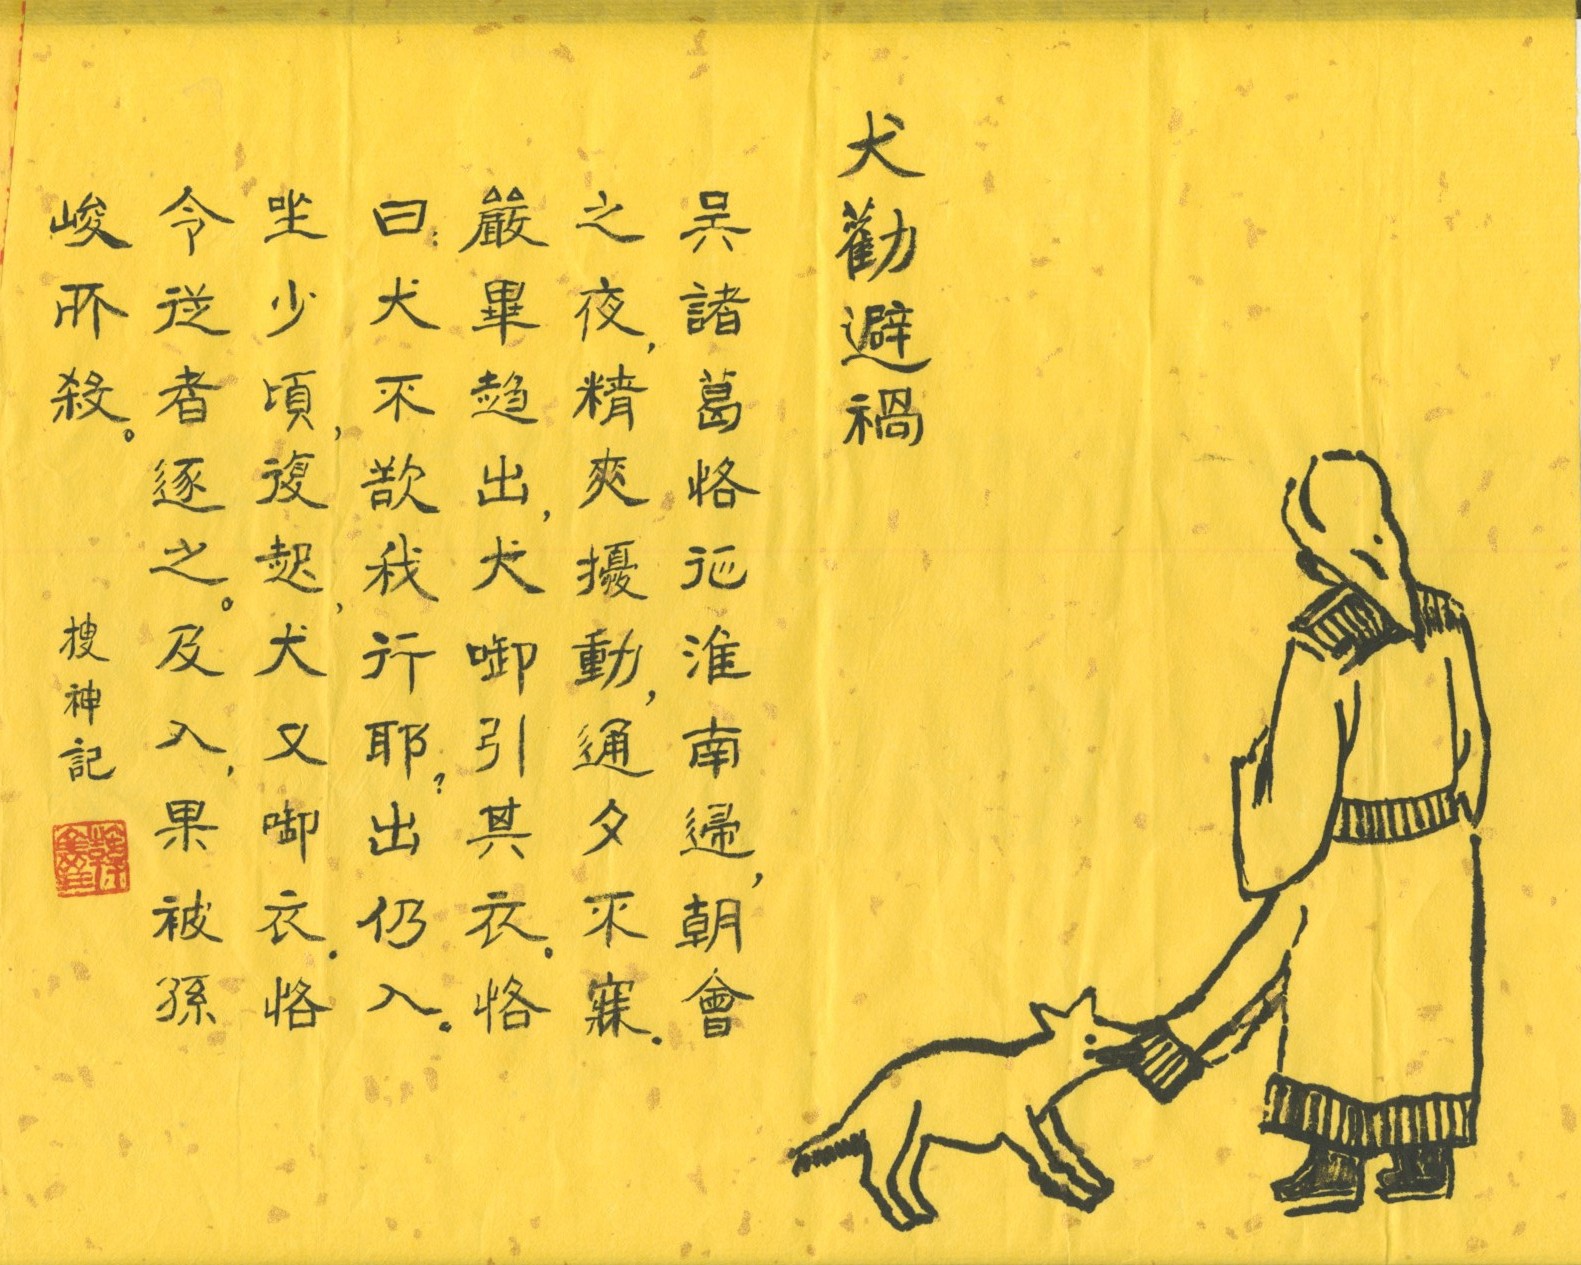 犬勸避禍
吳諸葛恪征淮南歸,朝會
之夜,精爽擾動,通夕不寐。
嚴畢趨出,犬啣引其衣。恪
曰:犬不欲我行耶?出仍入。
坐少頃,復起,犬又啣衣。恪
令從者逐之。及入,果被孫
峻所殺。
搜神記